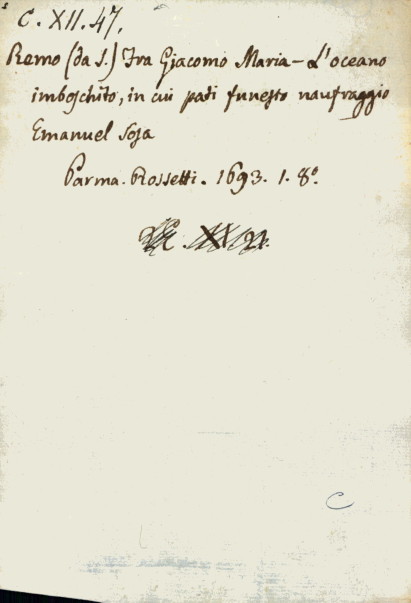 C. XII. 47.
Remo (da S.) Fra Giacomo Maria - L'oceano
imboschito, in cui patì funesto naufraggio
Emanuel Sosa
Parma. Rossetti. 1693. 1. 8°.
C